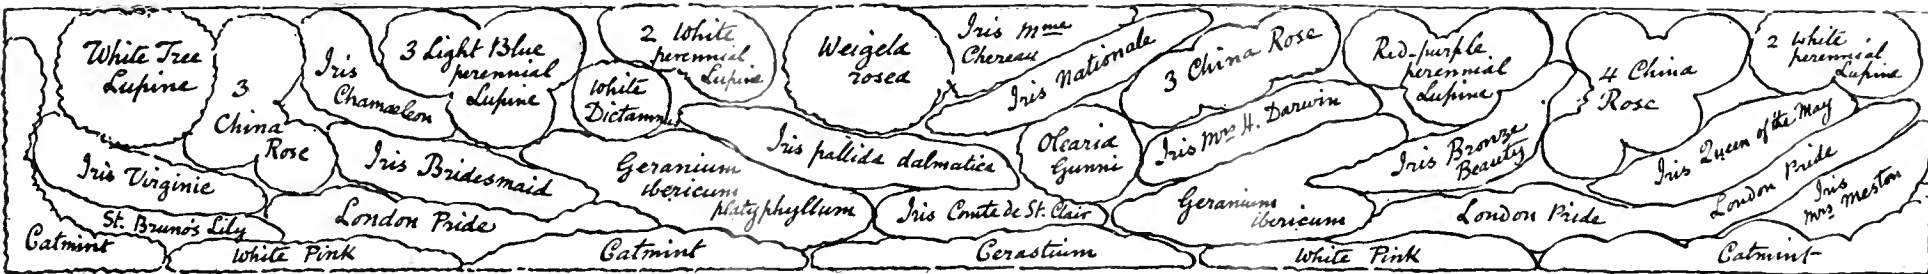 White Tree
Lupine
3
China
Rose
Iris
Chamæleon
3 Light Blue
perennial
Lupine
2 White
perennial
Lupine
White
Dictamnus
Weigela
rosea
Iris Mme
Chereau
Iris Nationale
3 China Rose
Red-purple
perennial
Lupine
4 China
Rose
2 White
perennial
Lupine
Iris Virginie
Iris Bridesmaid
Geranium
ibericum
platyphyllum
Iris pallida dalmatica
Olearia
Gunni
Iris Mrs H. Darwin
Geranium
ibericum
Iris Bronze
Beauty
Iris Queen of the May
London Pride
Iris
Mrs Meston
St. Bruno's Lily
London Pride
Iris Comte de St. Clair
London Pride
Catmint
White Pink
Catmint
Cerastium
White Pink
Catmint